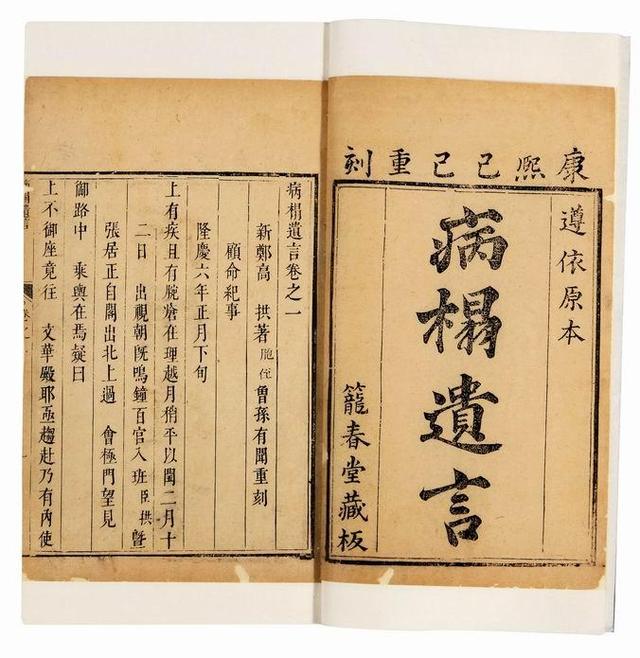 康熙己巳重刻
遵依原本
病榻遺言
籠春堂藏板
病榻遺言卷之一
新鄭高　拱著　胞侄曾孫有聞重刻
顧命紀事
隆慶六年正月下旬
上有疾且有腕瘡在理越月稍平以閏二月十
二日　出視朝旣鳴鐘百官入班臣拱曁
張居正自閣出北上過　會極門望見
御路中　乘輿在焉疑曰
上不御座竟往　文華殿耶亟趨赴乃有內使